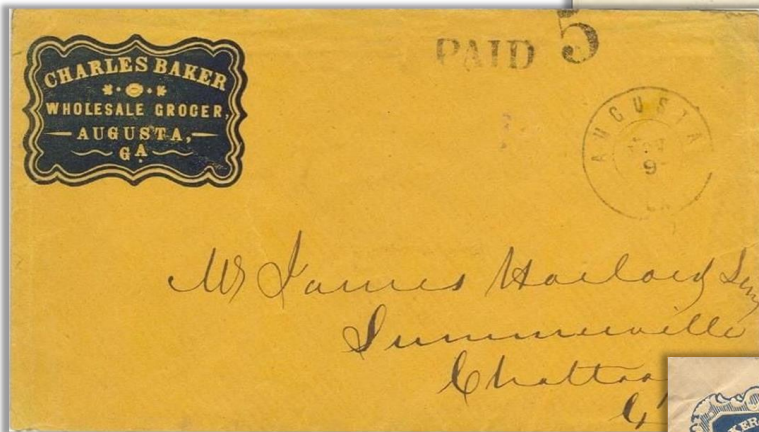 CHARLES BAKER
WHOLESALE GROCER,
AUGUSTA,
GA.
PAID 5
AUGUSTA
9
Mr James
Summerville
Chattoo